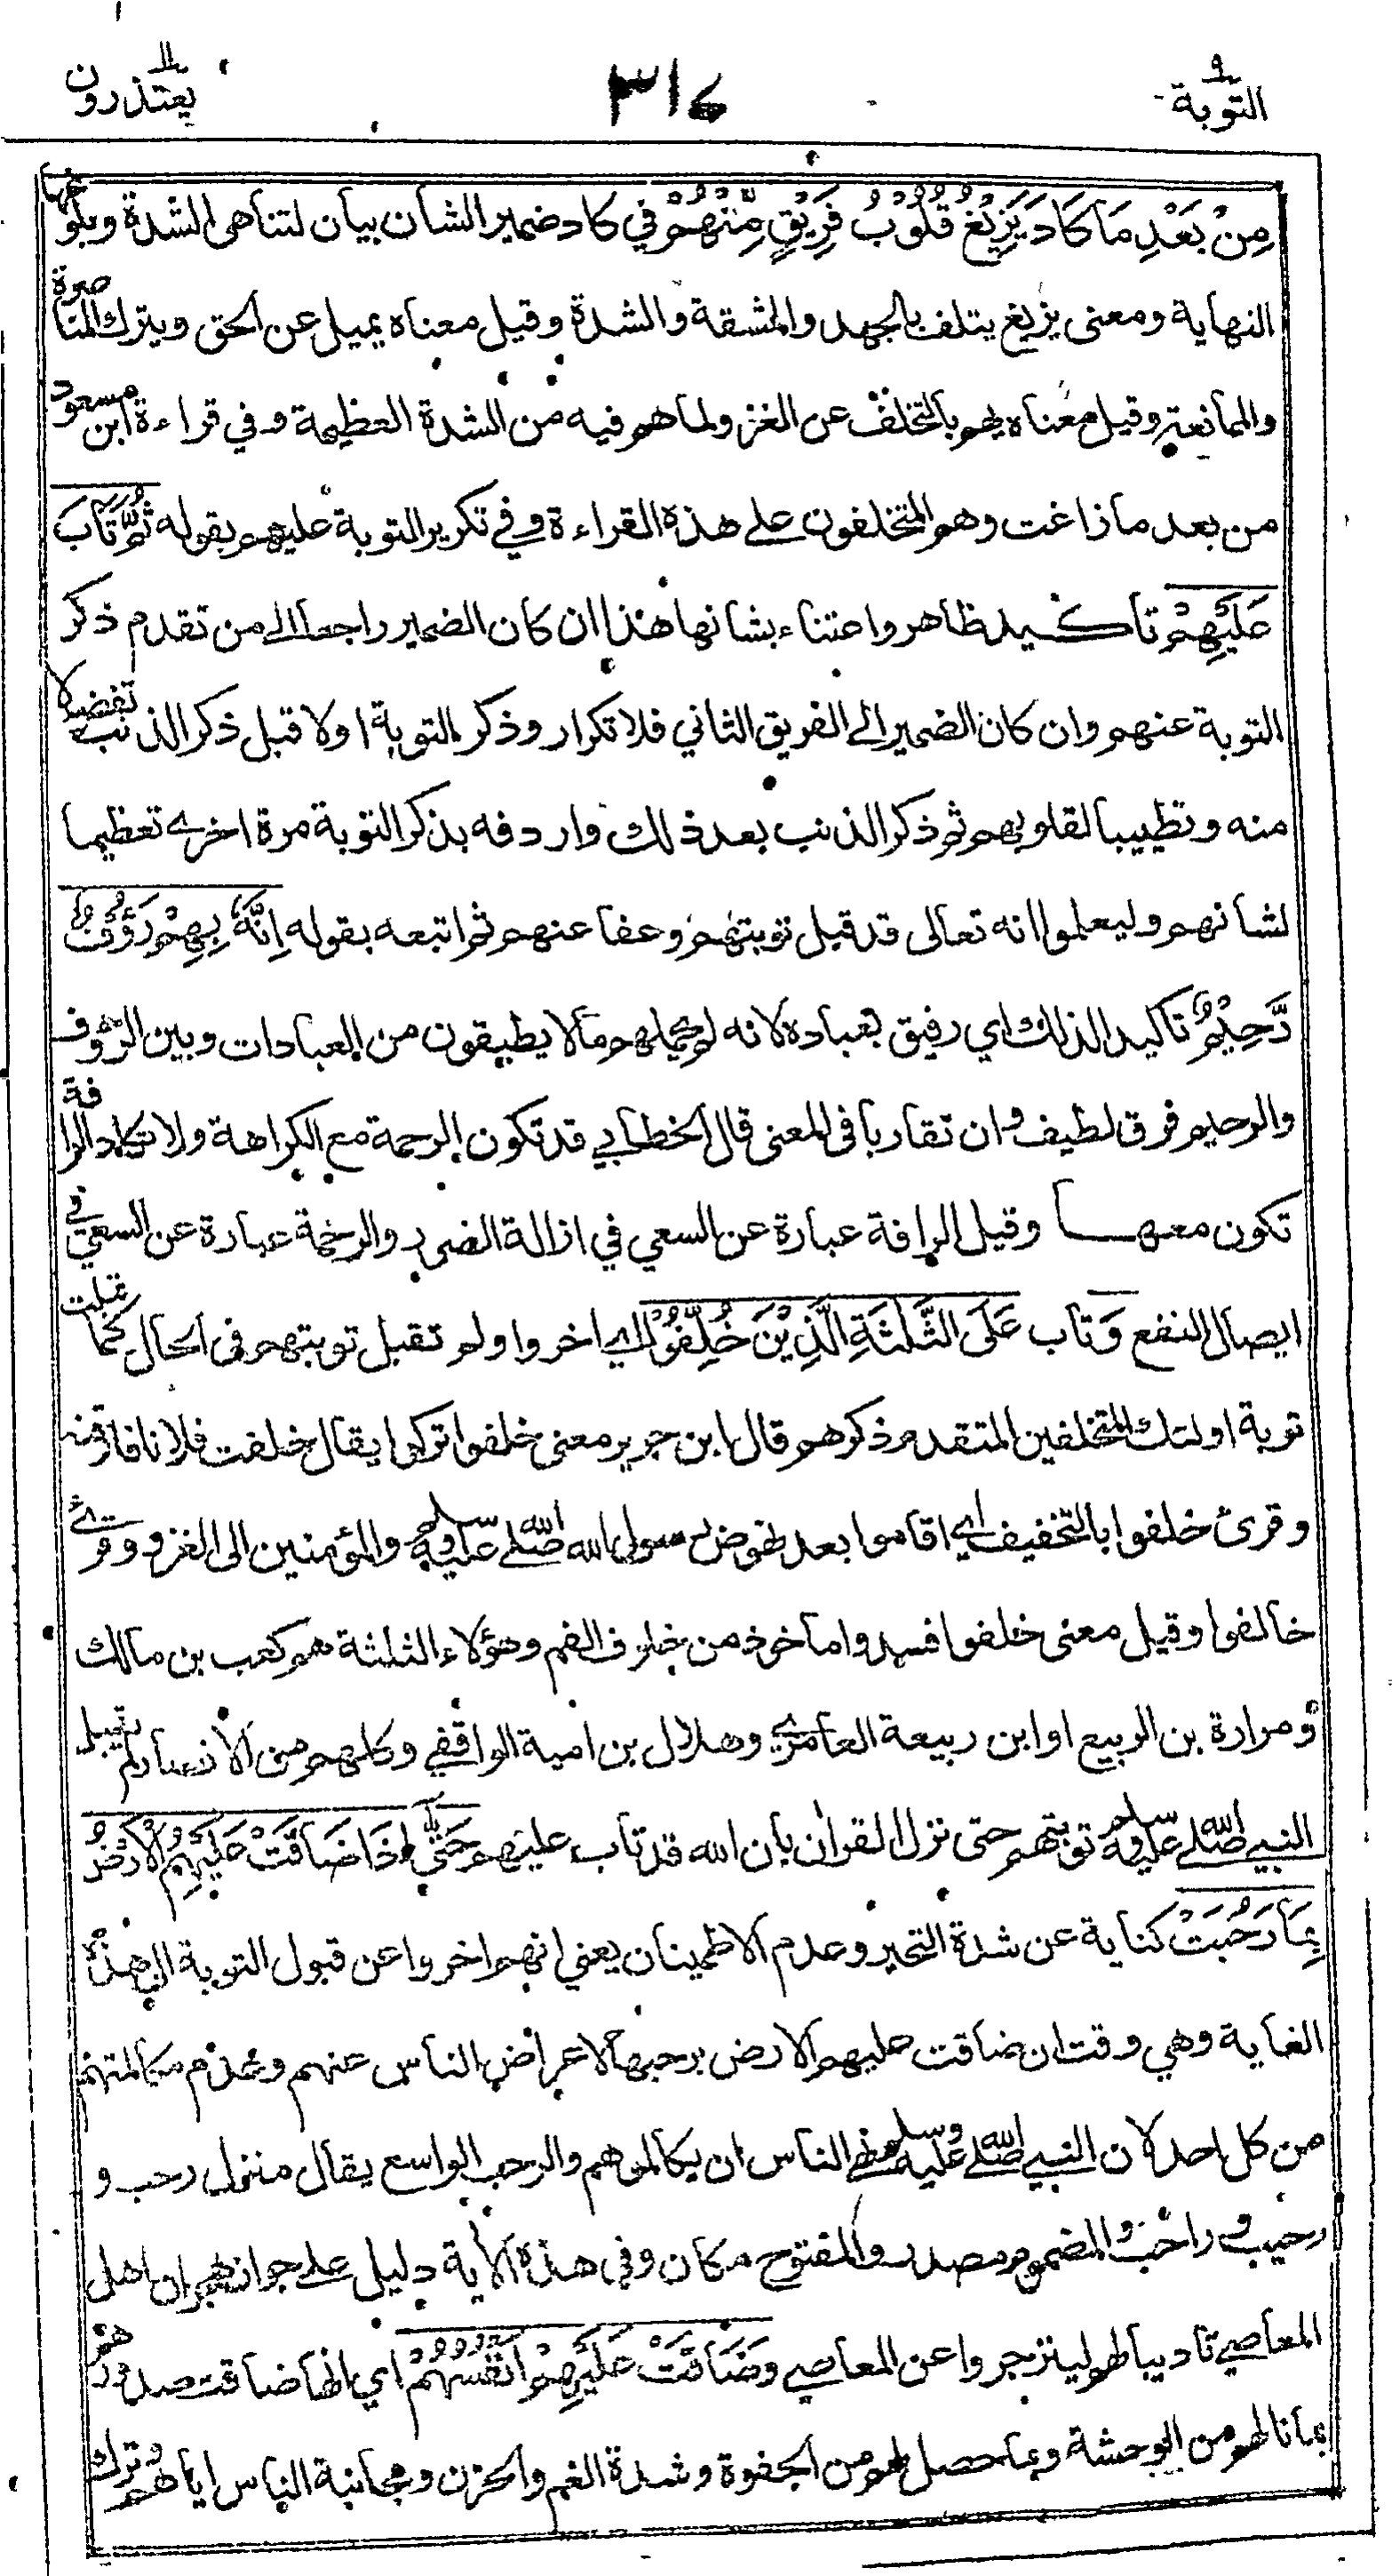 التوبة ٩
٣١٤
يعتذرون ١١
مِنْ بَعْدِ مَا كَادَ يَزِيْغُ قُلُوْبُ فَرِيْقٍ مِّنْهُمْ في كاد ضمير الشان بيان لتناهى الشدة وبلوغها
النهاية ومعنى يزيغ يتلف بالجهد والمشقة والشدة وقيل معناه يميل عن الحق ويترك المناصرة
والممانعة وقيل معناه يهم بالتخلف عن الغزو لما هم فيه من الشدة العظيمة وفي قراءة ابن مسعود
من بعد ما زاغت وهم المتخلفون على هذه القراءة وفي تكرير التوبة عليهم بقوله ثُمَّ تَابَ
عَلَيْهِمْ تاكيد ظاهر واعتناء بشانها هذا ان كان الضمير راجعا الى من تقدم ذكر
التوبة عنهم وان كان الضمير الى الفريق الثاني فلا تكرار وذكر التوبة اولا قبل ذكر الذنب تفضلا
منه وتطييبا لقلوبهم ثم ذكر الذنب بعد ذلك واردفه بذكر التوبة مرة اخرى تعظيما
لشانهم وليعلموا انه تعالى قد قبل توبتهم وعفا عنهم ثم اتبعه بقوله اِنَّهُ بِهِمْ رَؤُفٌ
رَّحِيْمٌ تاكيدا لذلك اي رفيق بعباده لانه لم يحملهم ما لا يطيقون من العبادات وبين الرؤوف
والرحيم فرق لطيف وان تقاربا فى المعنى قال الخطابي قد تكون الرحمة مع الكراهة ولا تكاد الرافة
تكون معها وقيل الرافة عبارة عن السعي في ازالة الضرر والرحمة عبارة عن السعي في
ايصال النفع وَتاب عَلَى الثَّلٰثَةِ الَّذِيْنَ خُلِّفُوْا اي اخروا ولم تقبل توبتهم فى الحال كما قبلت
توبة اولئك المتخلفين المتقدم ذكرهم قال ابن جرير معنى خلفوا تركوا يقال خلفت فلانا فارقته
وقرئ خلفوا بالتخفيف اي اقاموا بعد نهوض رسول الله صلى الله عليه وسلم والمؤمنين الى الغزو وقرئ
خالفوا وقيل معنى خلفوا فسدوا ماخوذ من خلوف الفم وهؤلاء الثلثة هم كعب بن مالك
ومرارة بن الربيع او ابن ربيعة العامري وهلال بن امية الواقفي وكلهم من الانصار لم يقبل
النبي صلى الله عليه وسلم توبتهم حتى نزل القران بان الله قد تاب عليهم حَتّٰى اِذَا ضَاقَتْ عَلَيْهِمُ الْاَرْضُ
بِمَا رَحُبَتْ كناية عن شدة التحير وعدم الاطمينان يعني انهم اخروا عن قبول التوبة الى هذه
الغاية وهي وقت ان ضاقت عليهم الارض برحبها لاعراض الناس عنهم وعدم مكالمتهم
من كل احد لان النبي صلى الله عليه وسلم نهى الناس ان يكالموهم والرحب الواسع يقال منزل رحب و
رحيب وراحب والمضموم مصدر والمفتوح مكان وفي هذه الاية دليل على جواز هجران اهل
المعاصي تاديبا لهم لينزجروا عن المعاصي وَضَاقَتْ عَلَيْهِمْ اَنْفُسُهُمْ اي انها ضاقت صدورهم
بما نالهم من الوحشة وبما حصل لهم من الجفوة وشدة الغم والحزن ومجانبة الناس اياهم وترك